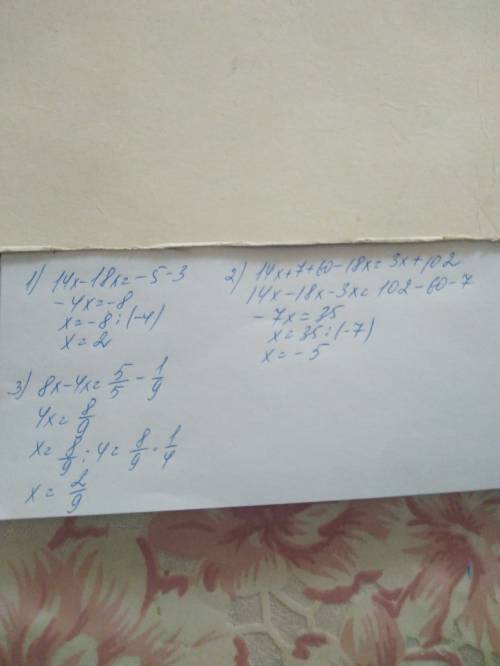 1) 14x-18x=-5-3
-4x=-8
x=-8:(-4)
x=2
2) 14x+7+60-18x=3x+102
14x-18x-3x=102-60-7
-7x=35
x=35:(-7)
x=-5
3) 8x-4x=5/5-1/9
4x=8/9
x=8/9:4=8/9·1/4
x=2/9